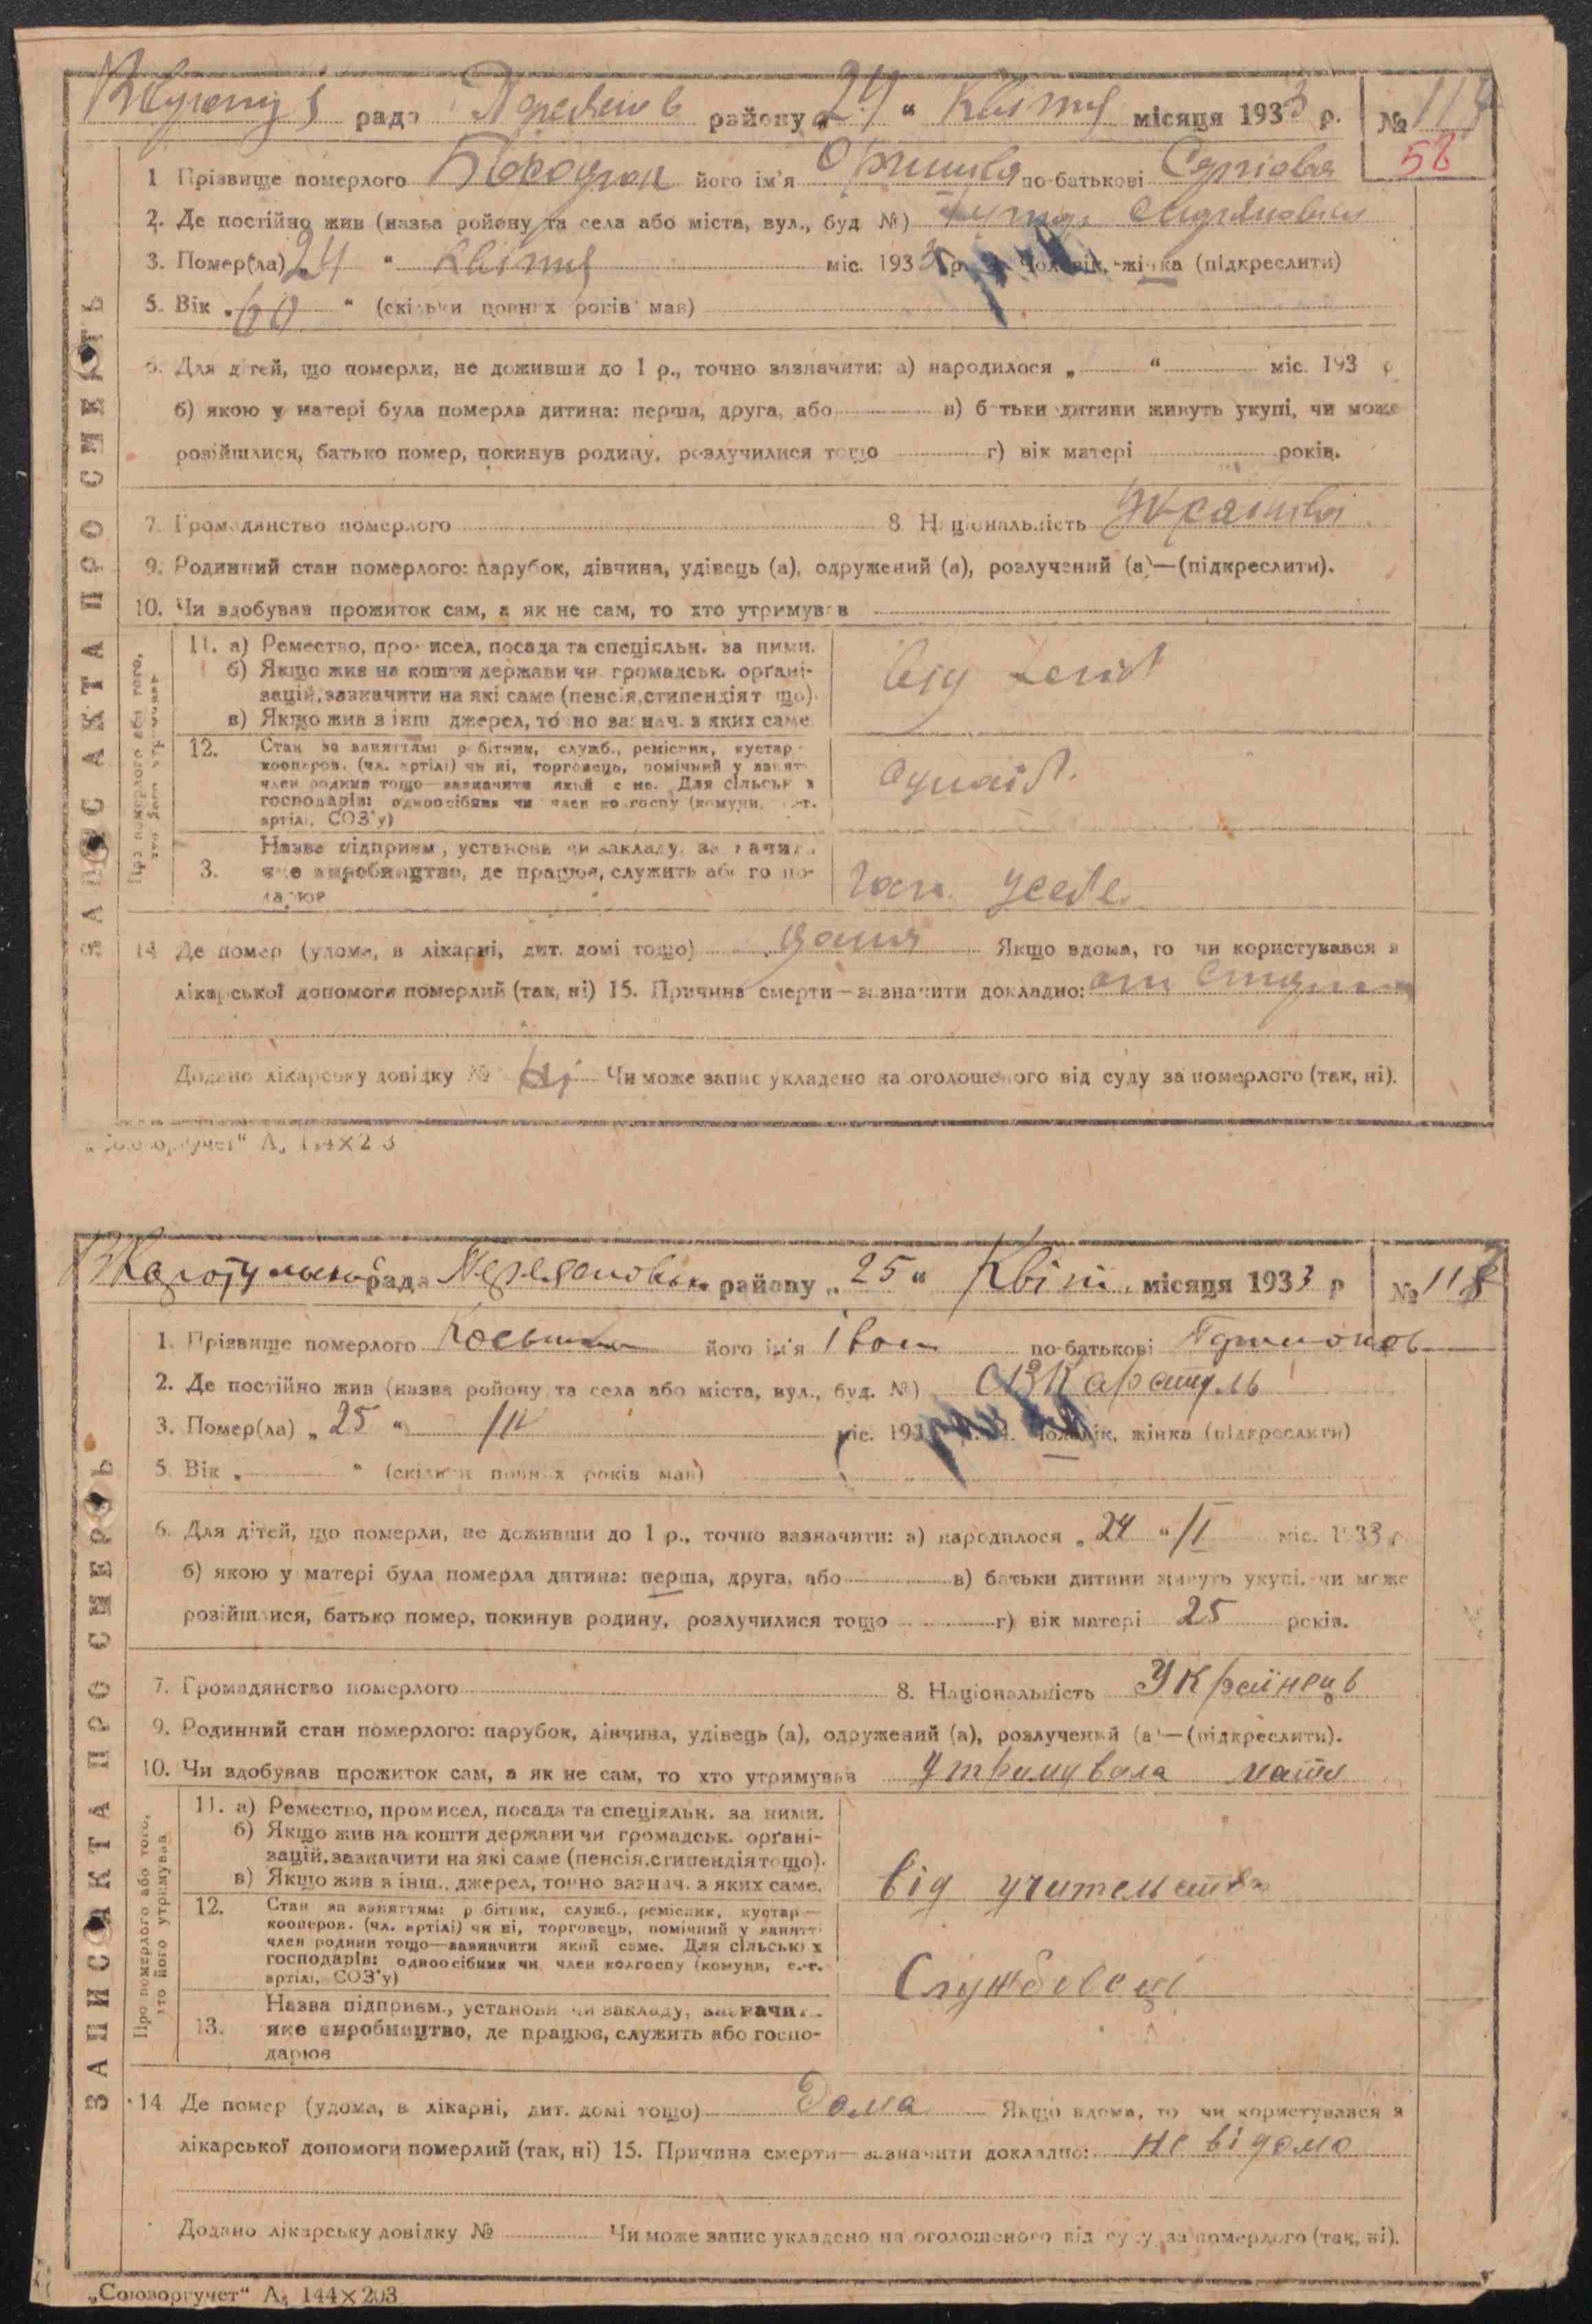 рада районy „24“ Квітня місяця 1933 р. № 117
58
1 Прізвище померлого його ім'я по-батькові
2. Де постійно жив (назва ройону та села або міста, вул., буд №)
3. Помер(ла) „24“ Квітня міс. 193 р. чоловік, жінка (підкреслити)
5. Вік „60“ (скільки повних років мав)
6. Для дітей, що померли, не доживши до 1 р., точно зазначити: а) народилося „ “ міс. 193 р
б) якою у матері була померла дитина: перша, друга, або в) батьки дитини живуть укупі, чи може
розійшлися, батько помер, покинув родину, розлучилися тощо г) вік матері років.
7. Громадянство померлого 8. Національність
9. Родинний стан померлого: парубок, дівчина, удівець (а), одружений (а), розлучений (а)—(підкреслити).
10. Чи здобував прожиток сам, а як не сам, то хто утримував
Про померлого або того, хто його утримував
11. а) Ремество, промисел, посада та спеціяльн. за ними.
б) Якщо жив на кошти держави чи громадськ. орґані-
зацій, зазначити на які саме (пенсія, стипендія тощо).
в) Якщо жив з інш джерел, точно зазнач. з яких саме
12. Стан за заняттям: робітник, служб., ремісник, кустар—
кооперов. (чл. артілі) чи ні, торговець, помічний у занятт
член родини тощо—зазначити який саме. Для сільських
господарів: одноосібник чи член колгоспу (комуни, с.-г.
артілі, СОЗ'у)
Назва підприєм., установи чи закладу, зазначити
3. яке виробництво, де працює, служить або госпо-
дарює
14 Де помер (удома, в лікарні, дит. домі тощо) дома Якщо вдома, то чи користувався з
лікарської допомоги померлий (так, ні) 15. Причина смерти—зазначити докладно:
Додано лікарську довідку № Чи може запис укладено на оголошеного від суду за померлого (так, ні).
ЗАПИС АКТА ПРО СМЕРТЬ
„Союзоргучет“ А₅ 144×203
рада районy „25“ Квіт. місяця 1933 р № 118
1. Прізвище померлого його ім'я Іван по-батькові
2. Де постійно жив (назва ройону та села або міста, вул., буд. №)
3. Помер(ла) „25“ IV міс. 193 чоловік, жінка (підкреслити)
5. Вік „ “ (скільки повних років мав)
6. Для дітей, що померли, не доживши до 1 р., точно зазначити: а) народилося „24“ II міс. 1933 р
б) якою у матері була померла дитина: перша, друга, або в) батьки дитини живуть укупі, чи може
розійшлися, батько помер, покинув родину, розлучилися тощо г) вік матері 25 років.
7. Громадянство померлого 8. Національність Українець
9. Родинний стан померлого: парубок, дівчина, удівець (а), одружений (а), розлучений (а)—(підкреслити).
10. Чи здобував прожиток сам, а як не сам, то хто утримував утримувала мати
Про померлого або того, хто його утримував
11. а) Ремество, промисел, посада та спеціяльн. за ними.
б) Якщо жив на кошти держави чи громадськ. орґані-
зацій, зазначити на які саме (пенсія, стипендія тощо).
в) Якщо жив з інш. джерел, точно зазнач. з яких саме.
від учительства
12. Стан за заняттям: робітник, служб., ремісник, кустар—
кооперов. (чл. артілі) чи ні, торговець, помічний у занятт
член родини тощо—зазначити який саме. Для сільських
господарів: одноосібник чи член колгоспу (комуни, с.-г.
артілі, СОЗ'у)
Службовці
Назва підприєм., установи чи закладу, зазначити
13. яке виробництво, де працює, служить або госпо-
дарює
14 Де помер (удома, в лікарні, дит. домі тощо) Дома Якщо вдома, то чи користувався з
лікарської допомоги померлий (так, ні) 15. Причина смерти—зазначити докладно: не відомо
Додано лікарську довідку № Чи може запис укладено на оголошеного від суду за померлого (так, ні).
ЗАПИС АКТА ПРО СМЕРТЬ
„Союзоргучет“ А₅ 144×203